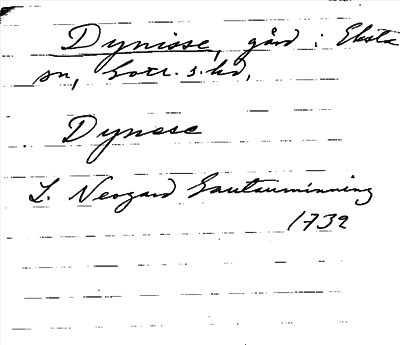 Dynisse, gård i Eksta
sn, Gotl. s. hd,
Dynese
L. Neogard Gautauminning
1732